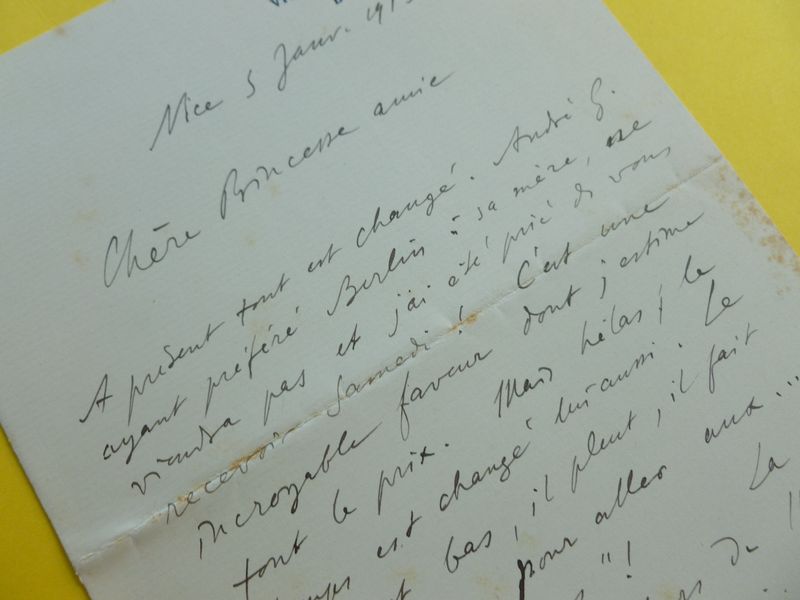 Nice 5 Janv. 191
Chère Princesse amie
A présent tout est changé. André G.
ayant préféré Berlin à sa mère, ne
viendra pas et j'ai été prié de vous
recevoir Samedi! C'est une
incroyable faveur dont j'estime
tout le prix. Mais hélas! le
temps est changé lui aussi. Le
bas, il pleut, il fait
pour aller aux...
"! La
de l'